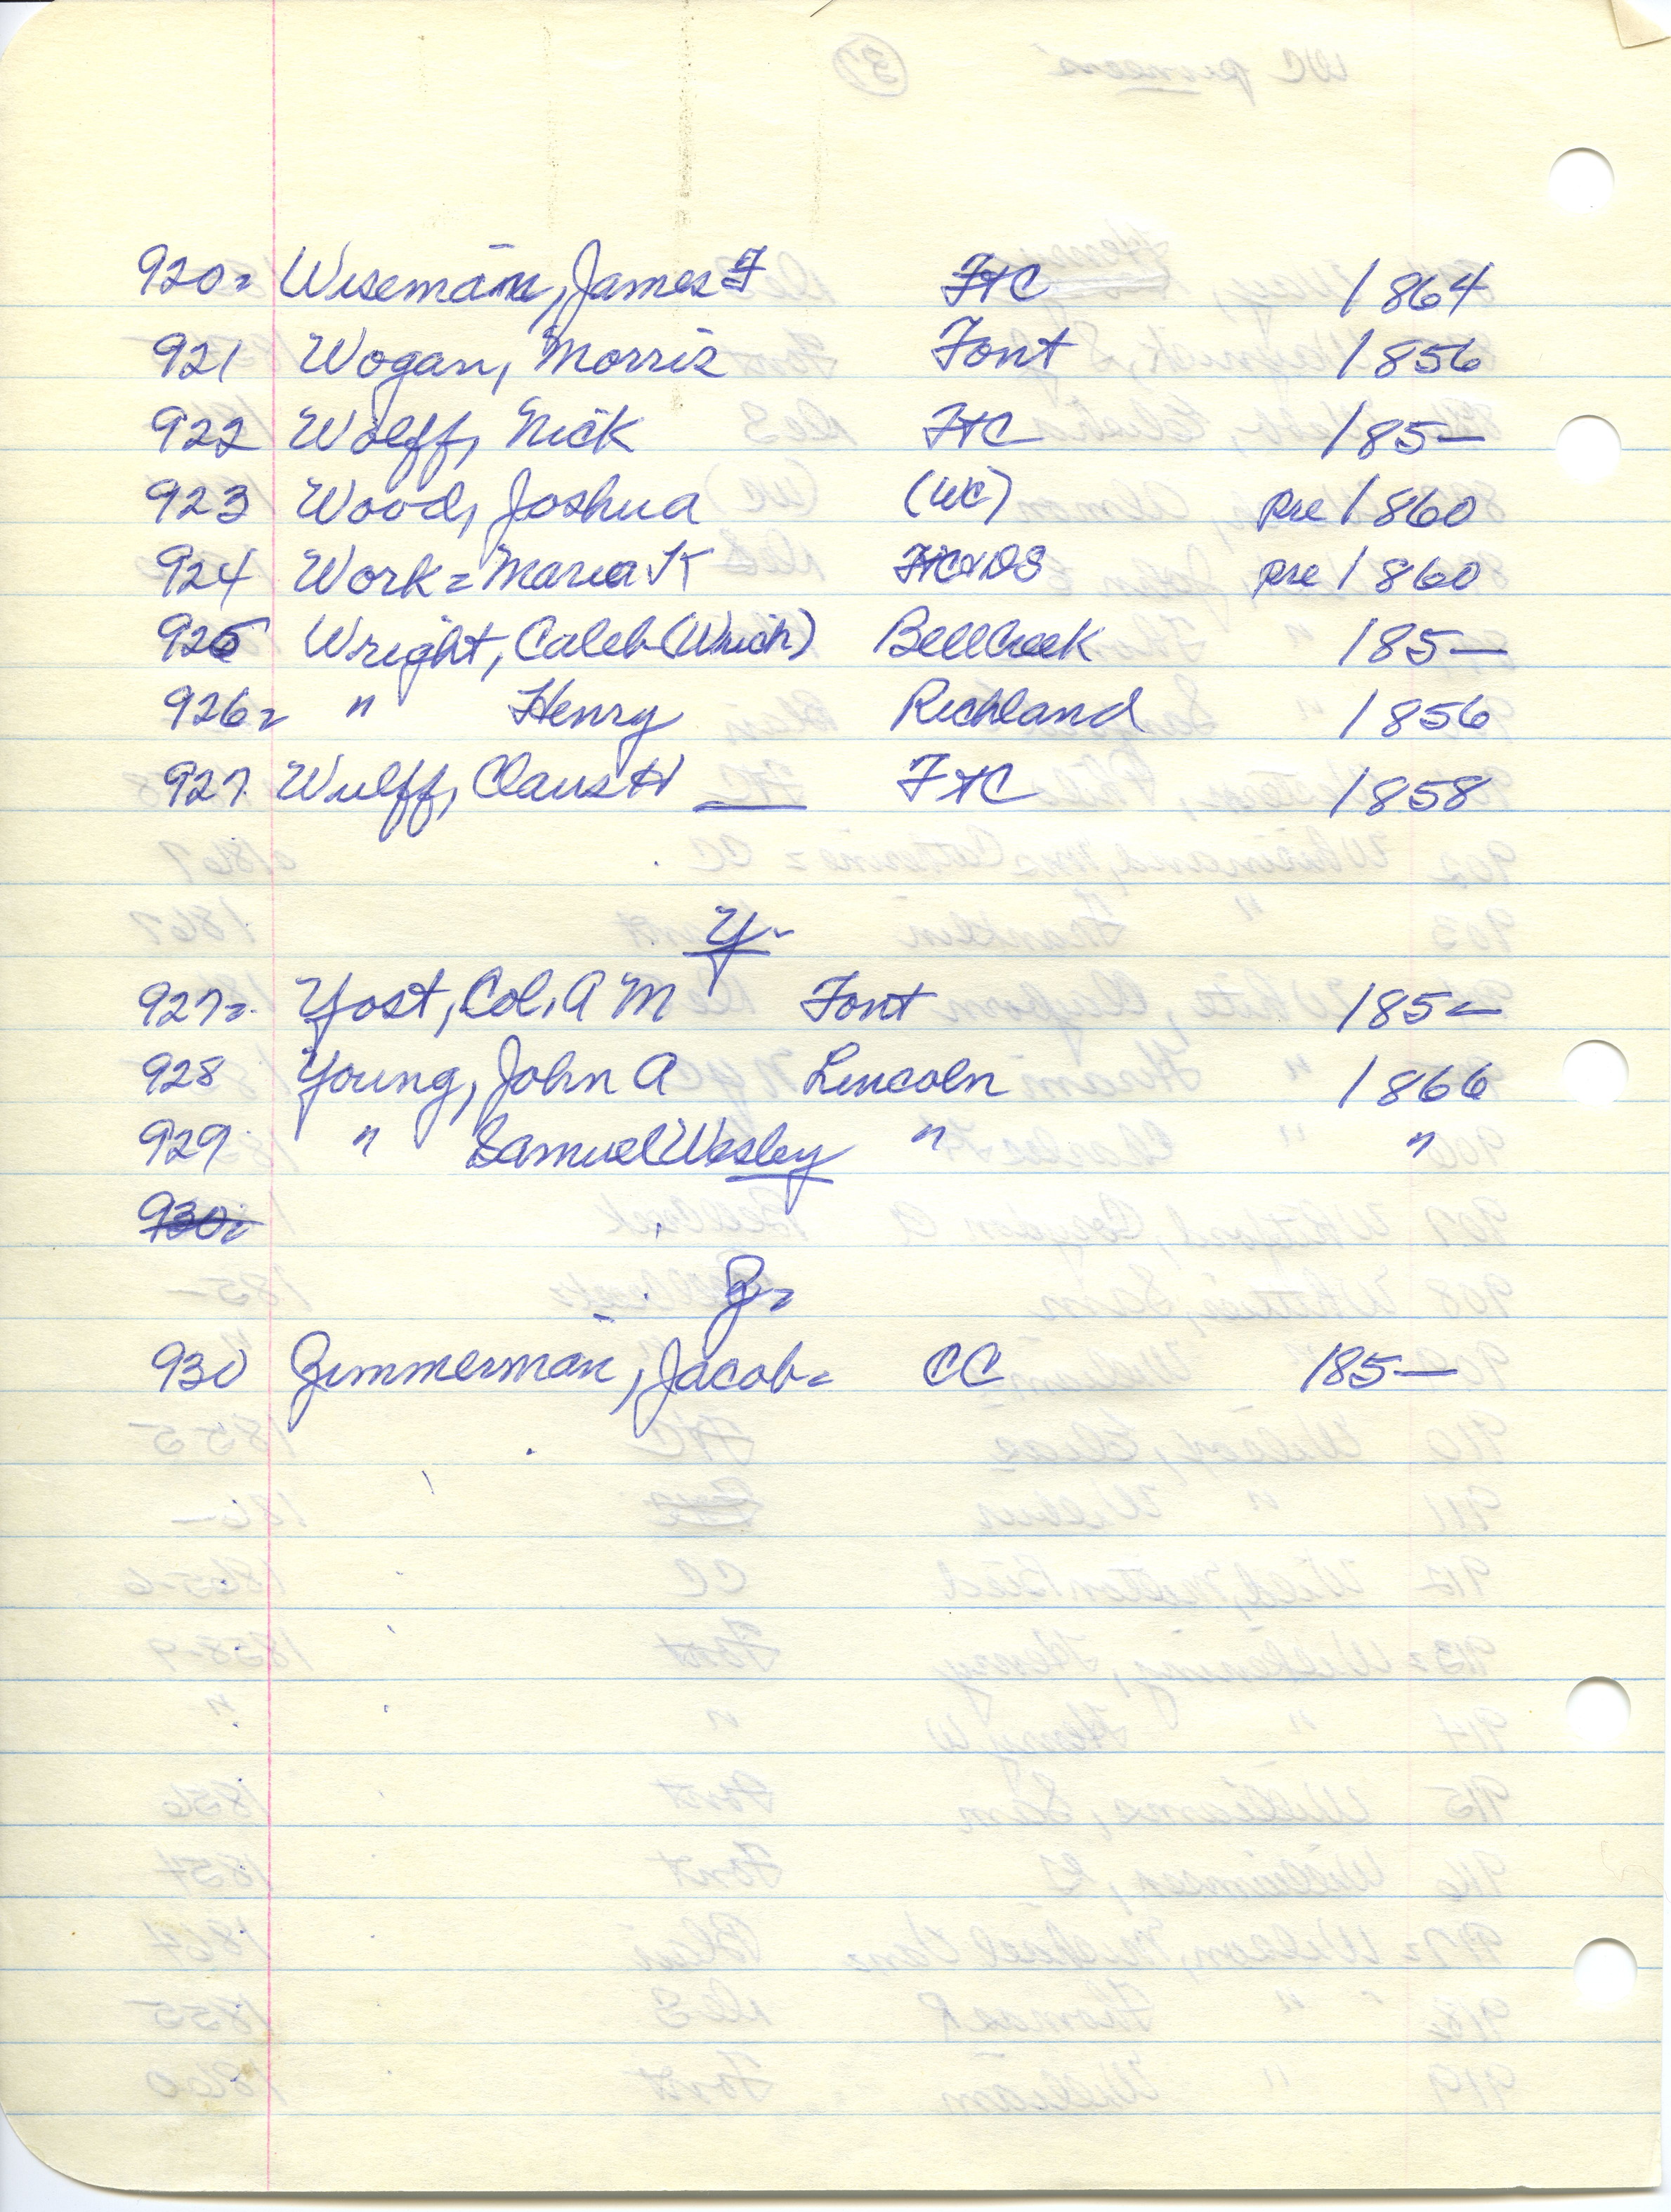 920 = Wiseman, James F FtC 1864
921 Wogan, Morris Font 1856
922 Wolff, Nick FtC 185—
923 Wood, Joshua (WC) pre 1860
924 Work = Maria K FtC + DS pre 1860
925 Wright, Caleb BellCreek 185—
926 = " Henry Richland 1856
927. Wulff, Claus H — FtC 1858
Y-
927 =. Yost, Col. A M Font 185—
928 Young, John A Lincoln 1866
929 " Samuel Wesley " "
930 =
Z =
930 Zimmerman, Jacob = CC 185—